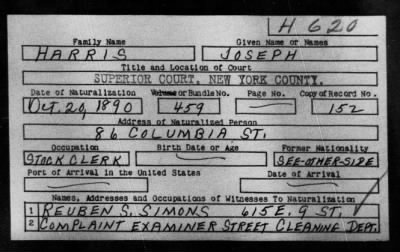 H 620
Family Name Given Name or Names
HARRIS JOSEPH
Title and Location of Court
SUPERIOR COURT, NEW YORK COUNTY.
Date of Naturalization Volume or Bundle No. Page No. Copy of Record No.
Oct. 20, 1890 459 152
Address of Naturalized Person
86 COLUMBIA ST.
Occupation Birth Date or Age Former Nationality
STOCK CLERK SEE-OTHER-SIDE
Port of Arrival in the United States Date of Arrival
Names, Addresses and Occupations of Witnesses To Naturalization
1 REUBEN S. SIMONS 615 E. 9 ST.
2 COMPLAINT EXAMINER STREET CLEANING DEPT.